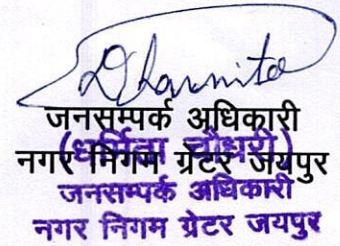 Dharmita
जनसम्पर्क अधिकारी
(धर्मिता चौधरी)
नगर निगम ग्रेटर जयपुर
जनसम्पर्क अधिकारी
नगर निगम ग्रेटर जयपुर